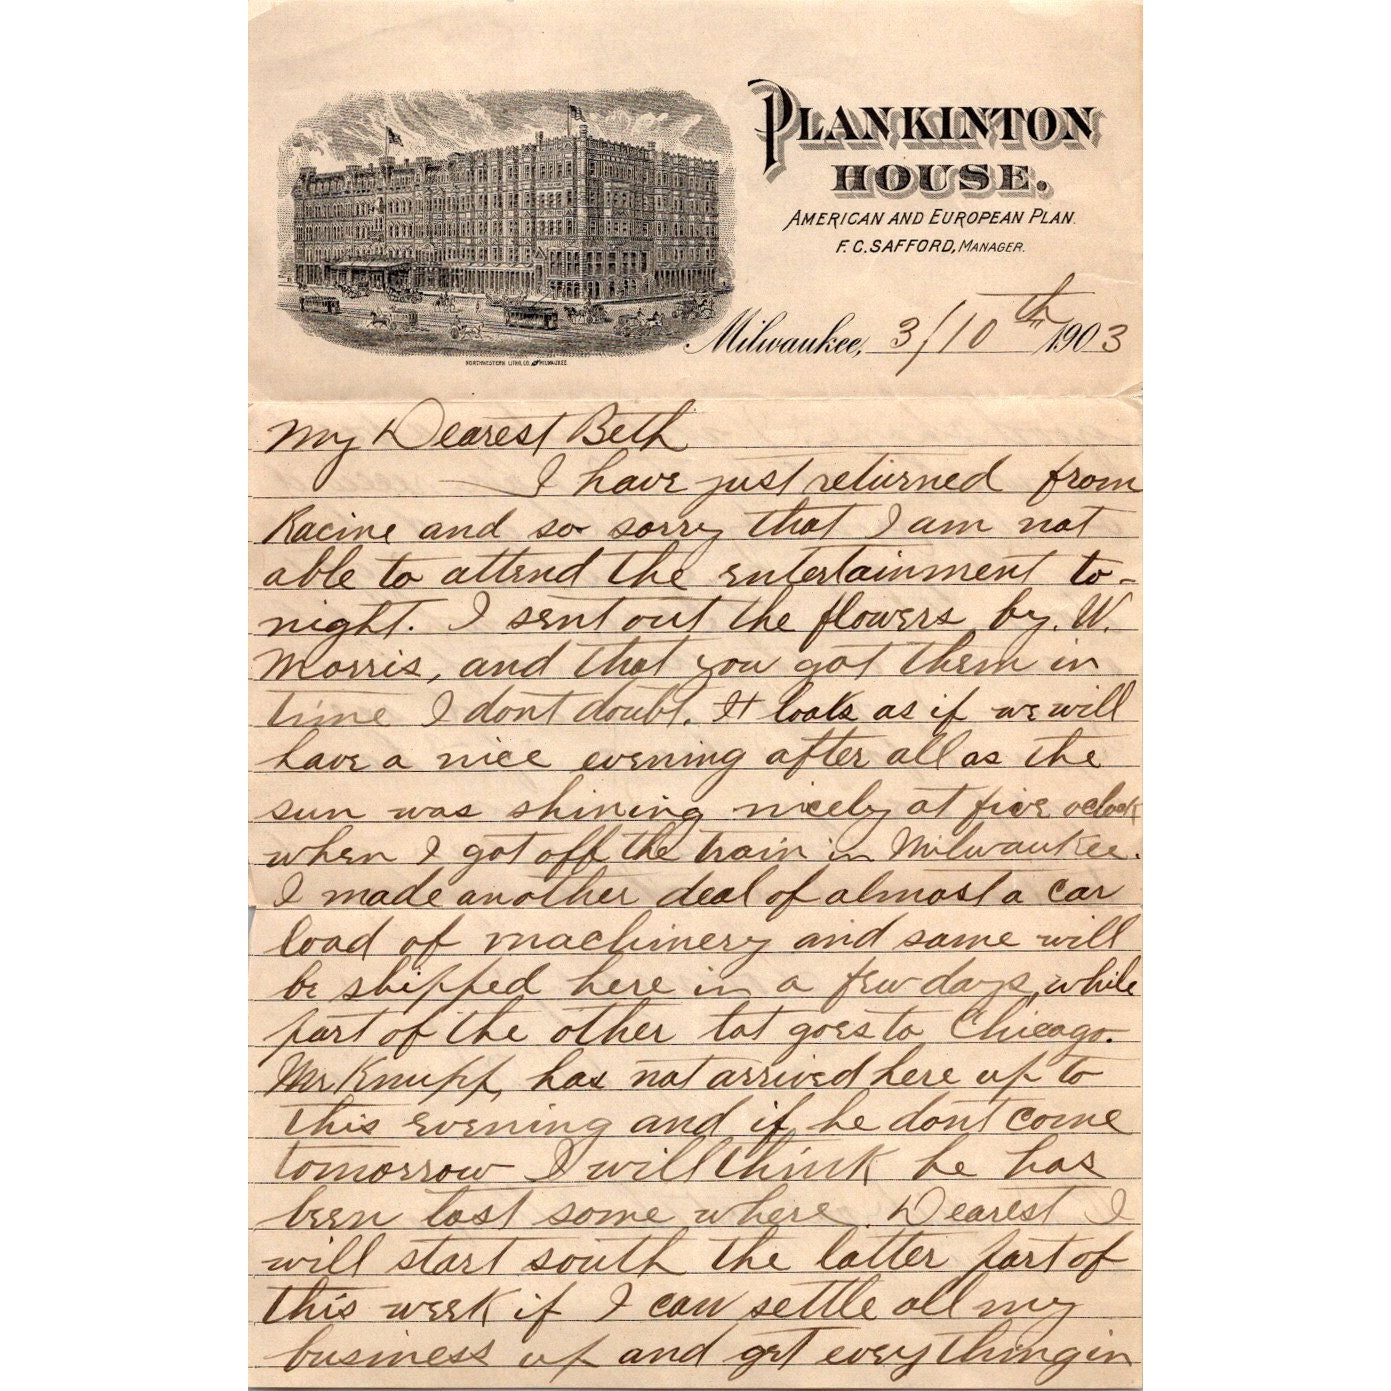 PLANKINTON
HOUSE.
AMERICAN AND EUROPEAN PLAN.
F. C. SAFFORD, MANAGER.
NORTHWESTERN LITHO. CO. MILWAUKEE
Milwaukee, 3/10th 1903
My Dearest Beth
I have just returned from
Racine and so sorry that I am not
able to attend the entertainment to-
night. I sent out the flowers by. W.
Morris, and that you got them in
time I dont doubt. It looks as if we will
have a nice evening after all as the
sun was shining nicely at five oclock
when I got off the train in Milwaukee.
I made another deal of almost a car
load of machinery and same will
be shipped here in a few days, while
part of the other lot goes to Chicago.
Mr Knupp, has not arrived here up to
this evening and if he dont come
tomorrow I will think he has
been lost some where. Dearest I
will start south the latter part of
this week if I can settle all my
business up and get everything in